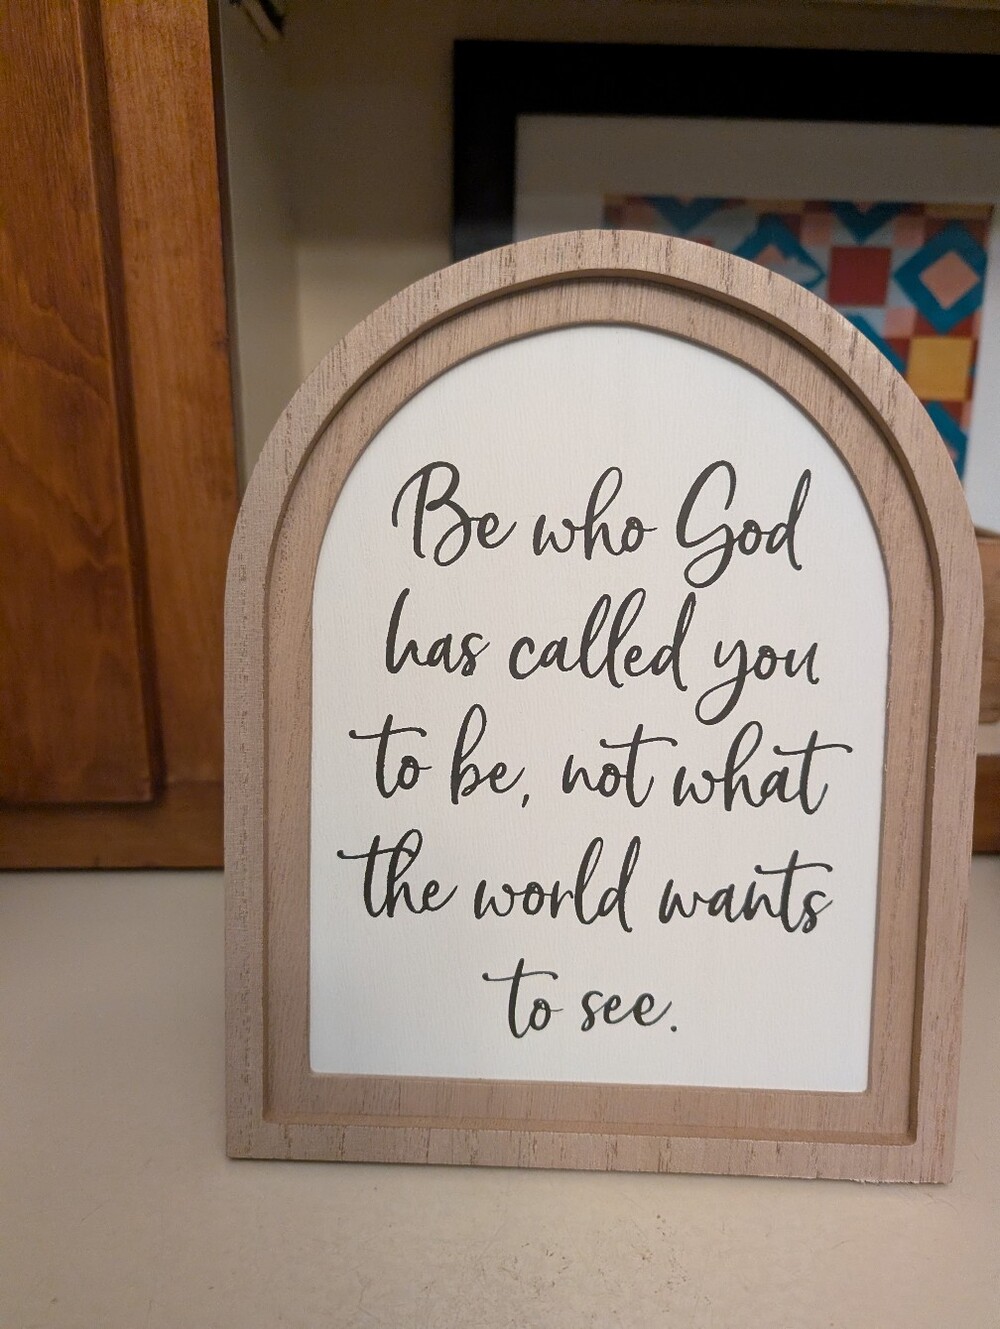 Be who God
has called you
to be, not what
the world wants
to see.